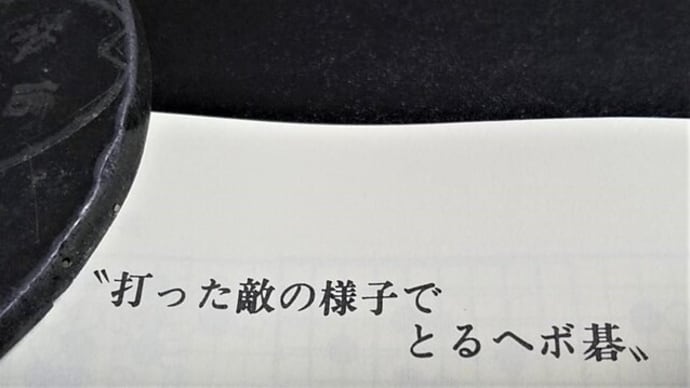 〝打った敵の様子で
とるヘボ碁〟